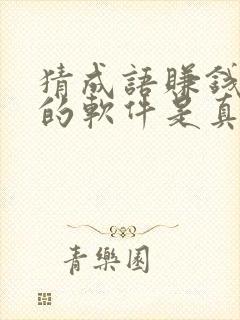 猜成語賺錢
的軟件是真
青樂園